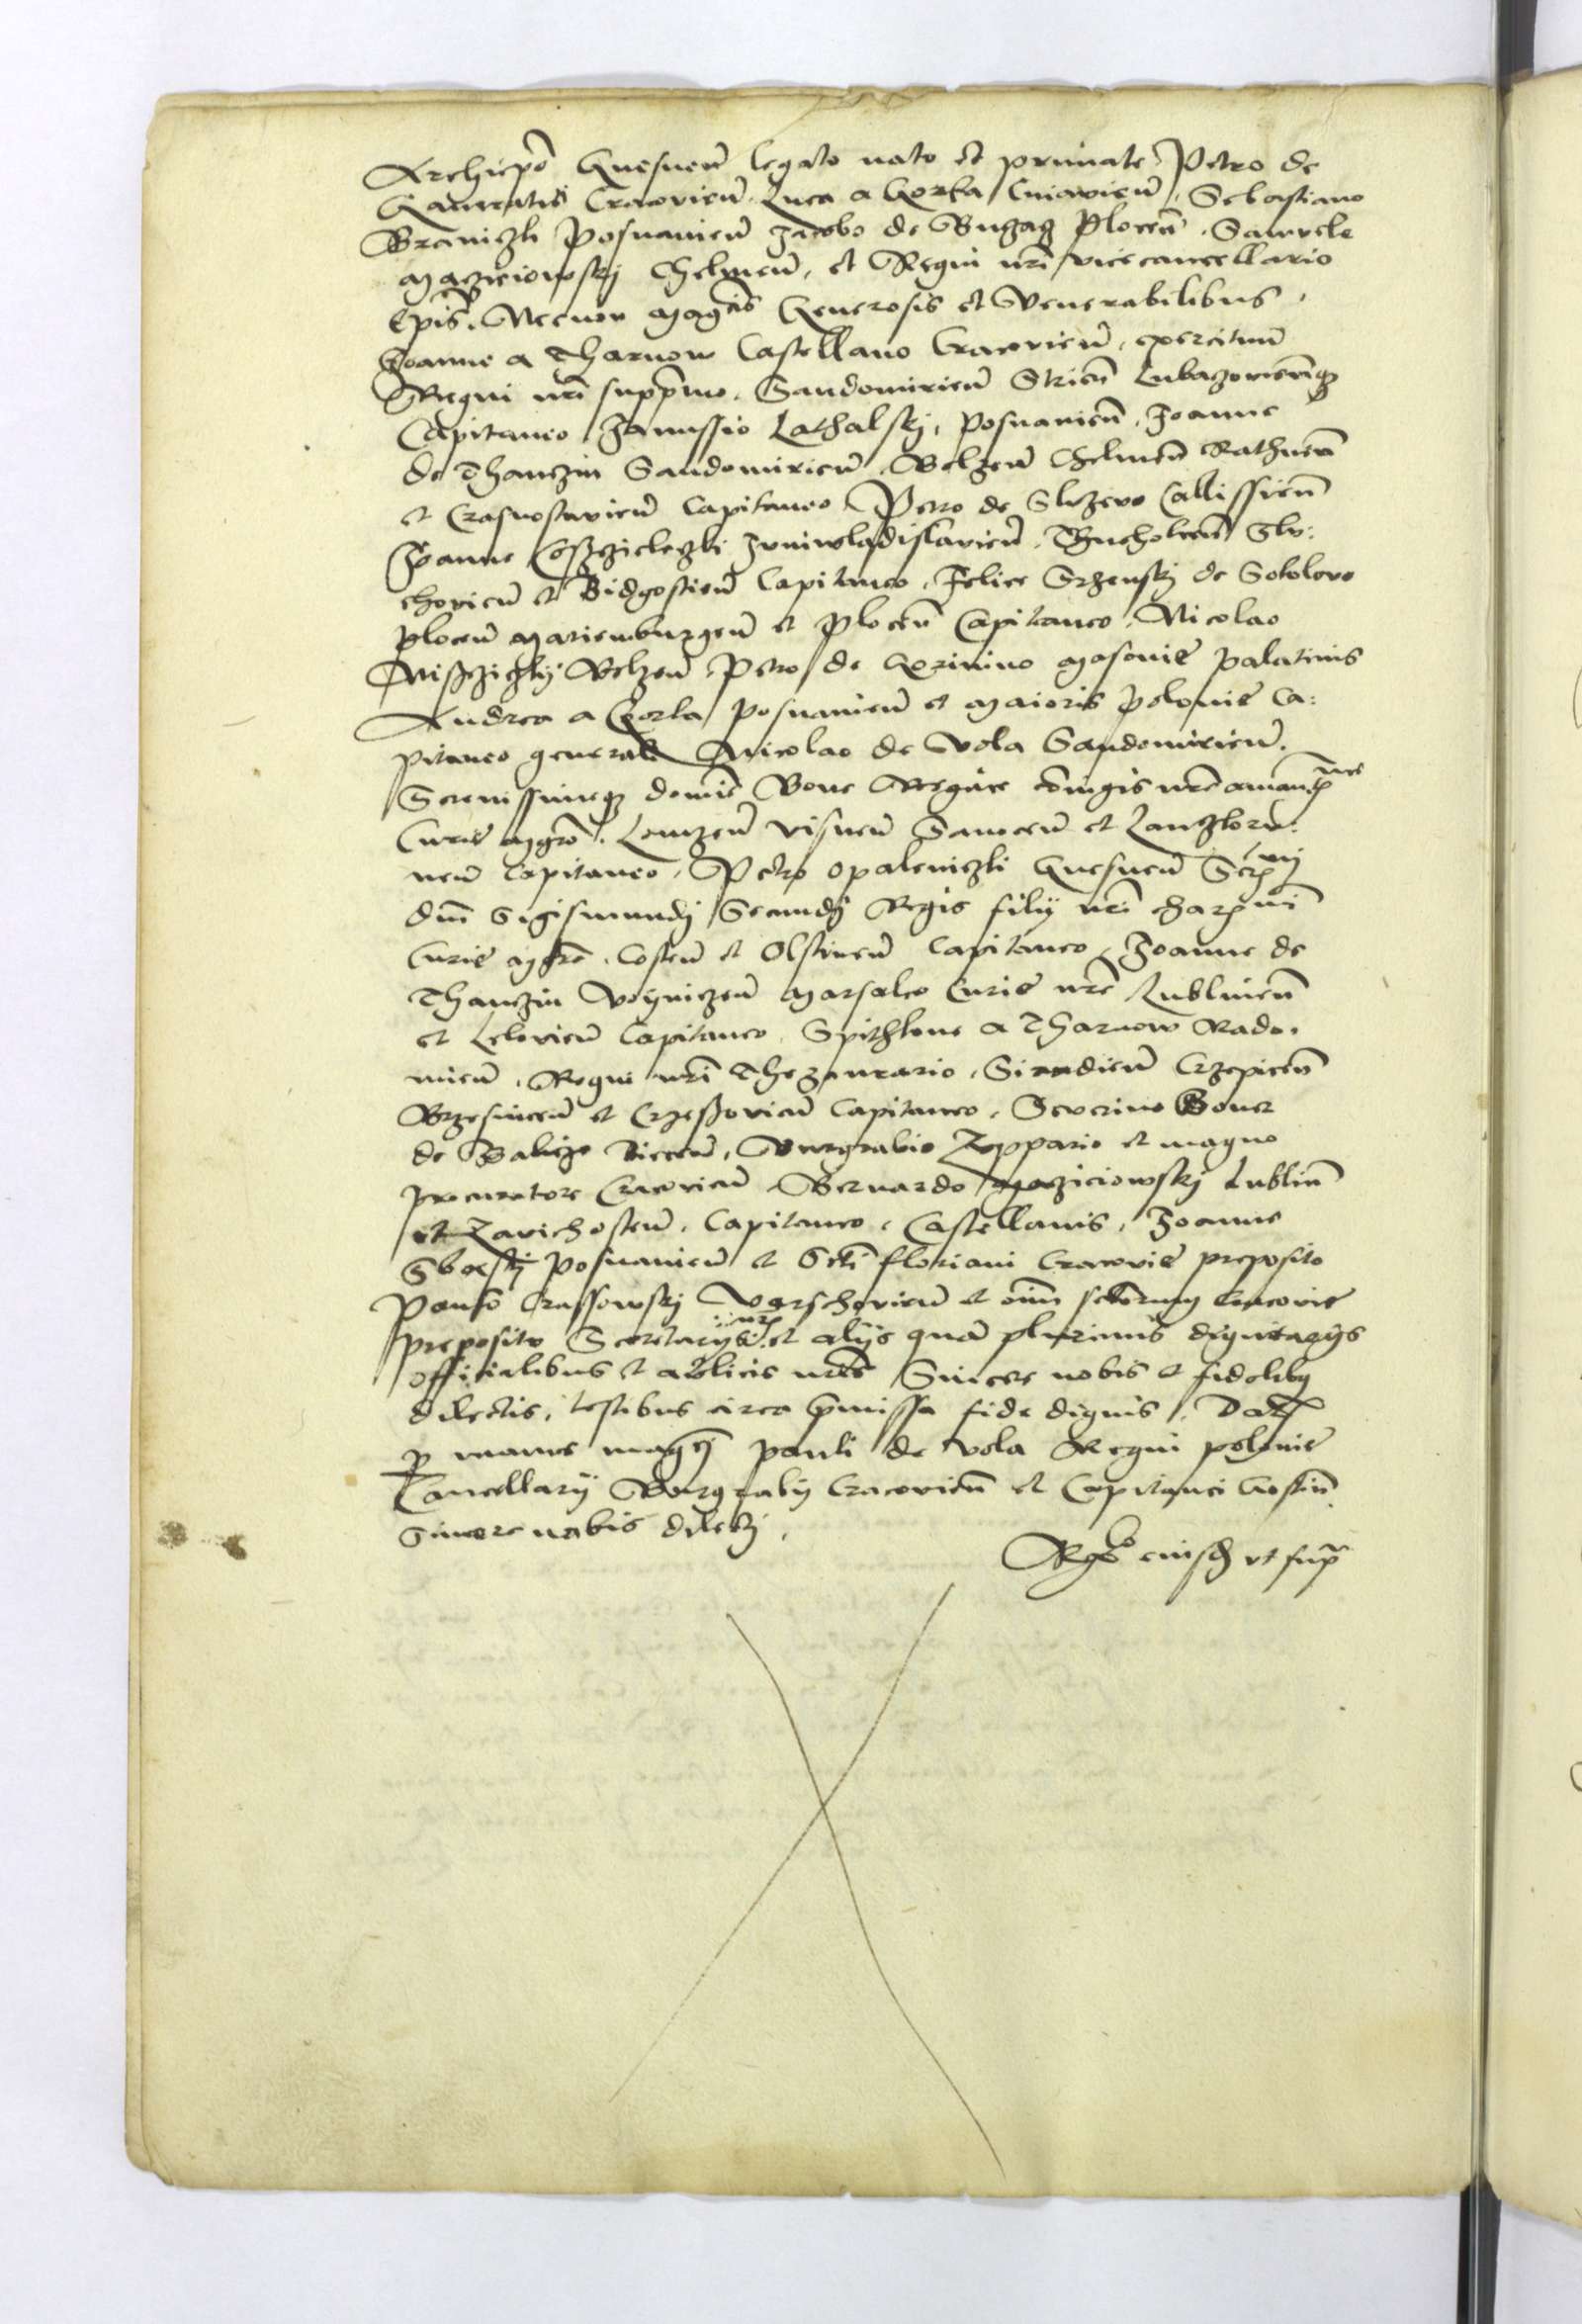 Archiepo Gnesnen legato nato et primate Petro de
Gamratis Cracovien Luca a Gorka Cuiavien, Sebastiano
Braniczki Posnanien Jacobo de Bugay Plocen, Samuele
Maczieiowskij Chelmen, et Regni nri vicecancellario
Epis. Necnon Magcis Generosis et Venerabilibus,
Joanne a Tharnow Castellano Cracovien, exercituum
Regni nri suppmo, Sandomirien Strien Lubaczovienqz
Capitaneo Janussio Lathalskj, Posnanien, Joanne
de Thanczin Sandomirien, Belzen Chelmen Rathnen
et Crasnostavien Capitaneo, Petro de Sluzevo Callissien
Joanne Cosczieleczki Juniwladislavien, Thucholien Slu:
chovien et Bidgostien Capitaneo, Felice Srzenskj de Sokolovo
plocen Mariemburgen et plocen Capitaneo, Nicolao
Nisczickij Belzen, Petro de Gorinino Masovie palatinis
Andrea a Gorka posnanien et Maioris polonie Ca:
pitaneo generali Nicolao de Vola Sandomirien,
Serenissimeqz domine Bone Regine coniugis nre amantme
Curie mgro, Lomzen Visnen Sanocen et Lanczkoru:
nen Capitaneo, Petro Opaleniczki Gnesnen Sermi
dni Sigismundj Secundj Regis filij nri charmi
Curie mgro, Costen et Olstinen Capitaneo, Joanne de
Thanczin Voyniczen Marsalco Curie nre Lublinen
et Lelovien Capitaneo, Spithkone a Tharnow Rado,
mien, Regni nri Thezaurario, Siradien Crzepicen
Brzesnicen et Crzessovien Capitaneo, Severino Boner
de Balicze Biecen, Burgrabio Zuppario et magno
procuratore Cracovien, Bernardo Macziciowskj Lublin
et Zavichosten, Capitaneo, Castellanis, Joanne
posnanien et Scti floriani Cracovie preposito
Paulo Crassowskj Varschovien et oim sctorum Cracovie
preposito Secretarijs nris et alijs quam plurimis dignitarijs
officialibus et aulicis nris Sincere nobis et fidelibus
dilectis, testibus circa pmissa fide dignis, Dat
p manus magci pauli de vola Regni polonie
Cancellarij Burgrabij Cracovien et Capitanei Gostin
sincere nobis dilectj,
Rgo eiusd ut sup